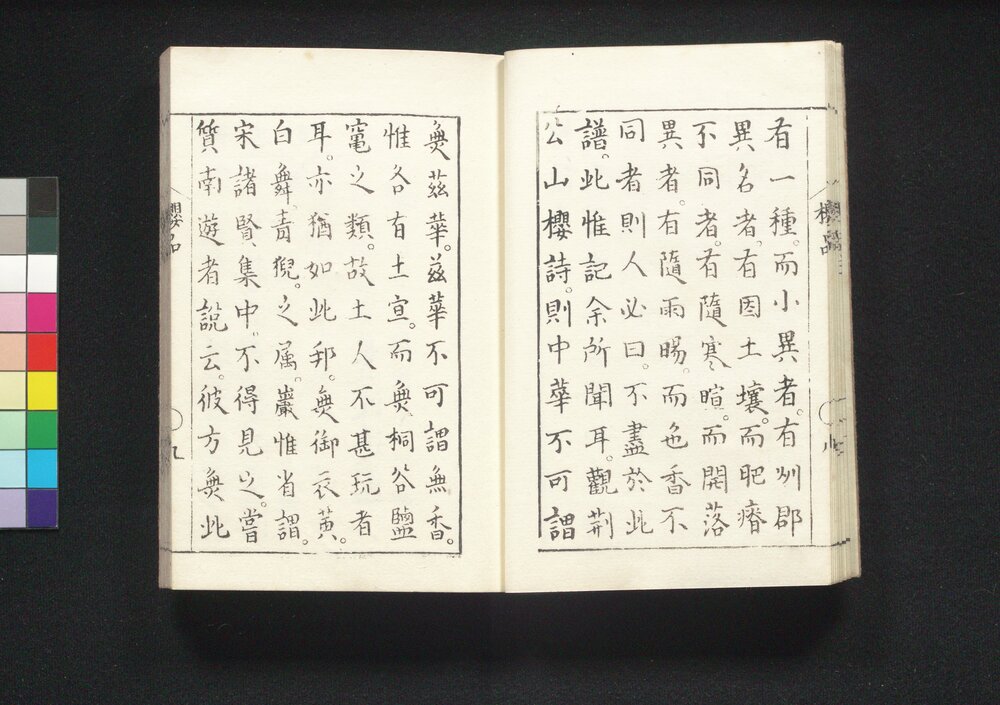 有一種。而小異者。有州郡
異名者。有因土壤。而肥瘠
不同者。有隨寒暄。而開落
異者。有隨雨暘。而色香不
同者則人必曰。不盡於此
譜。此惟記余所聞耳。觀荆
公山櫻詩。則中華不可謂
無茲華。茲華不可謂無香。
惟各有土宜。而無桐谷鹽
竃之類。故土人不甚玩者
耳。亦猶如此邦。無御衣黃。
白舞。青猊。之属。巖惟省謂。
宋諸賢集中。不得見之。嘗
質南遊者說云。彼方無此
櫻品